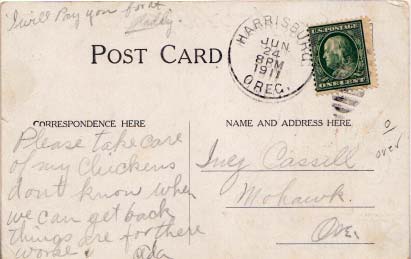 I will Pay you for it
Daddy.
POST CARD
HARRISBURG,
JUN
24
8PM
1911
OREG.
U.S. POSTAGE
ONE CENT
CORRESPONDENCE HERE
NAME AND ADDRESS HERE
Please take care
of my chickens
dont know when
we can get back
things are for there
worse.
Inez Cassell
Mohawk
Ore.
over